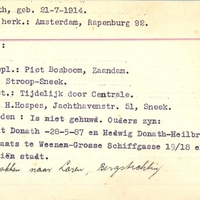 th, geb. 21-7-1914.
herk.: Amsterdam, Rapenburg 92.
:
pl.: Piet Bosboom, Zaandam.
Stroop-Sneek.
t.: Tijdelijk door Centrale.
H.Hospes, Jachthavenstr. 51, Sneek.
den : Is niet gehuwd. Ouders zijn:
t Donath -28-5-87 en Hedwig Donath-Heilbr
aats te Weenen-Grosse Schiffgasse 19/18 e
iën stadt.
naar Laren,